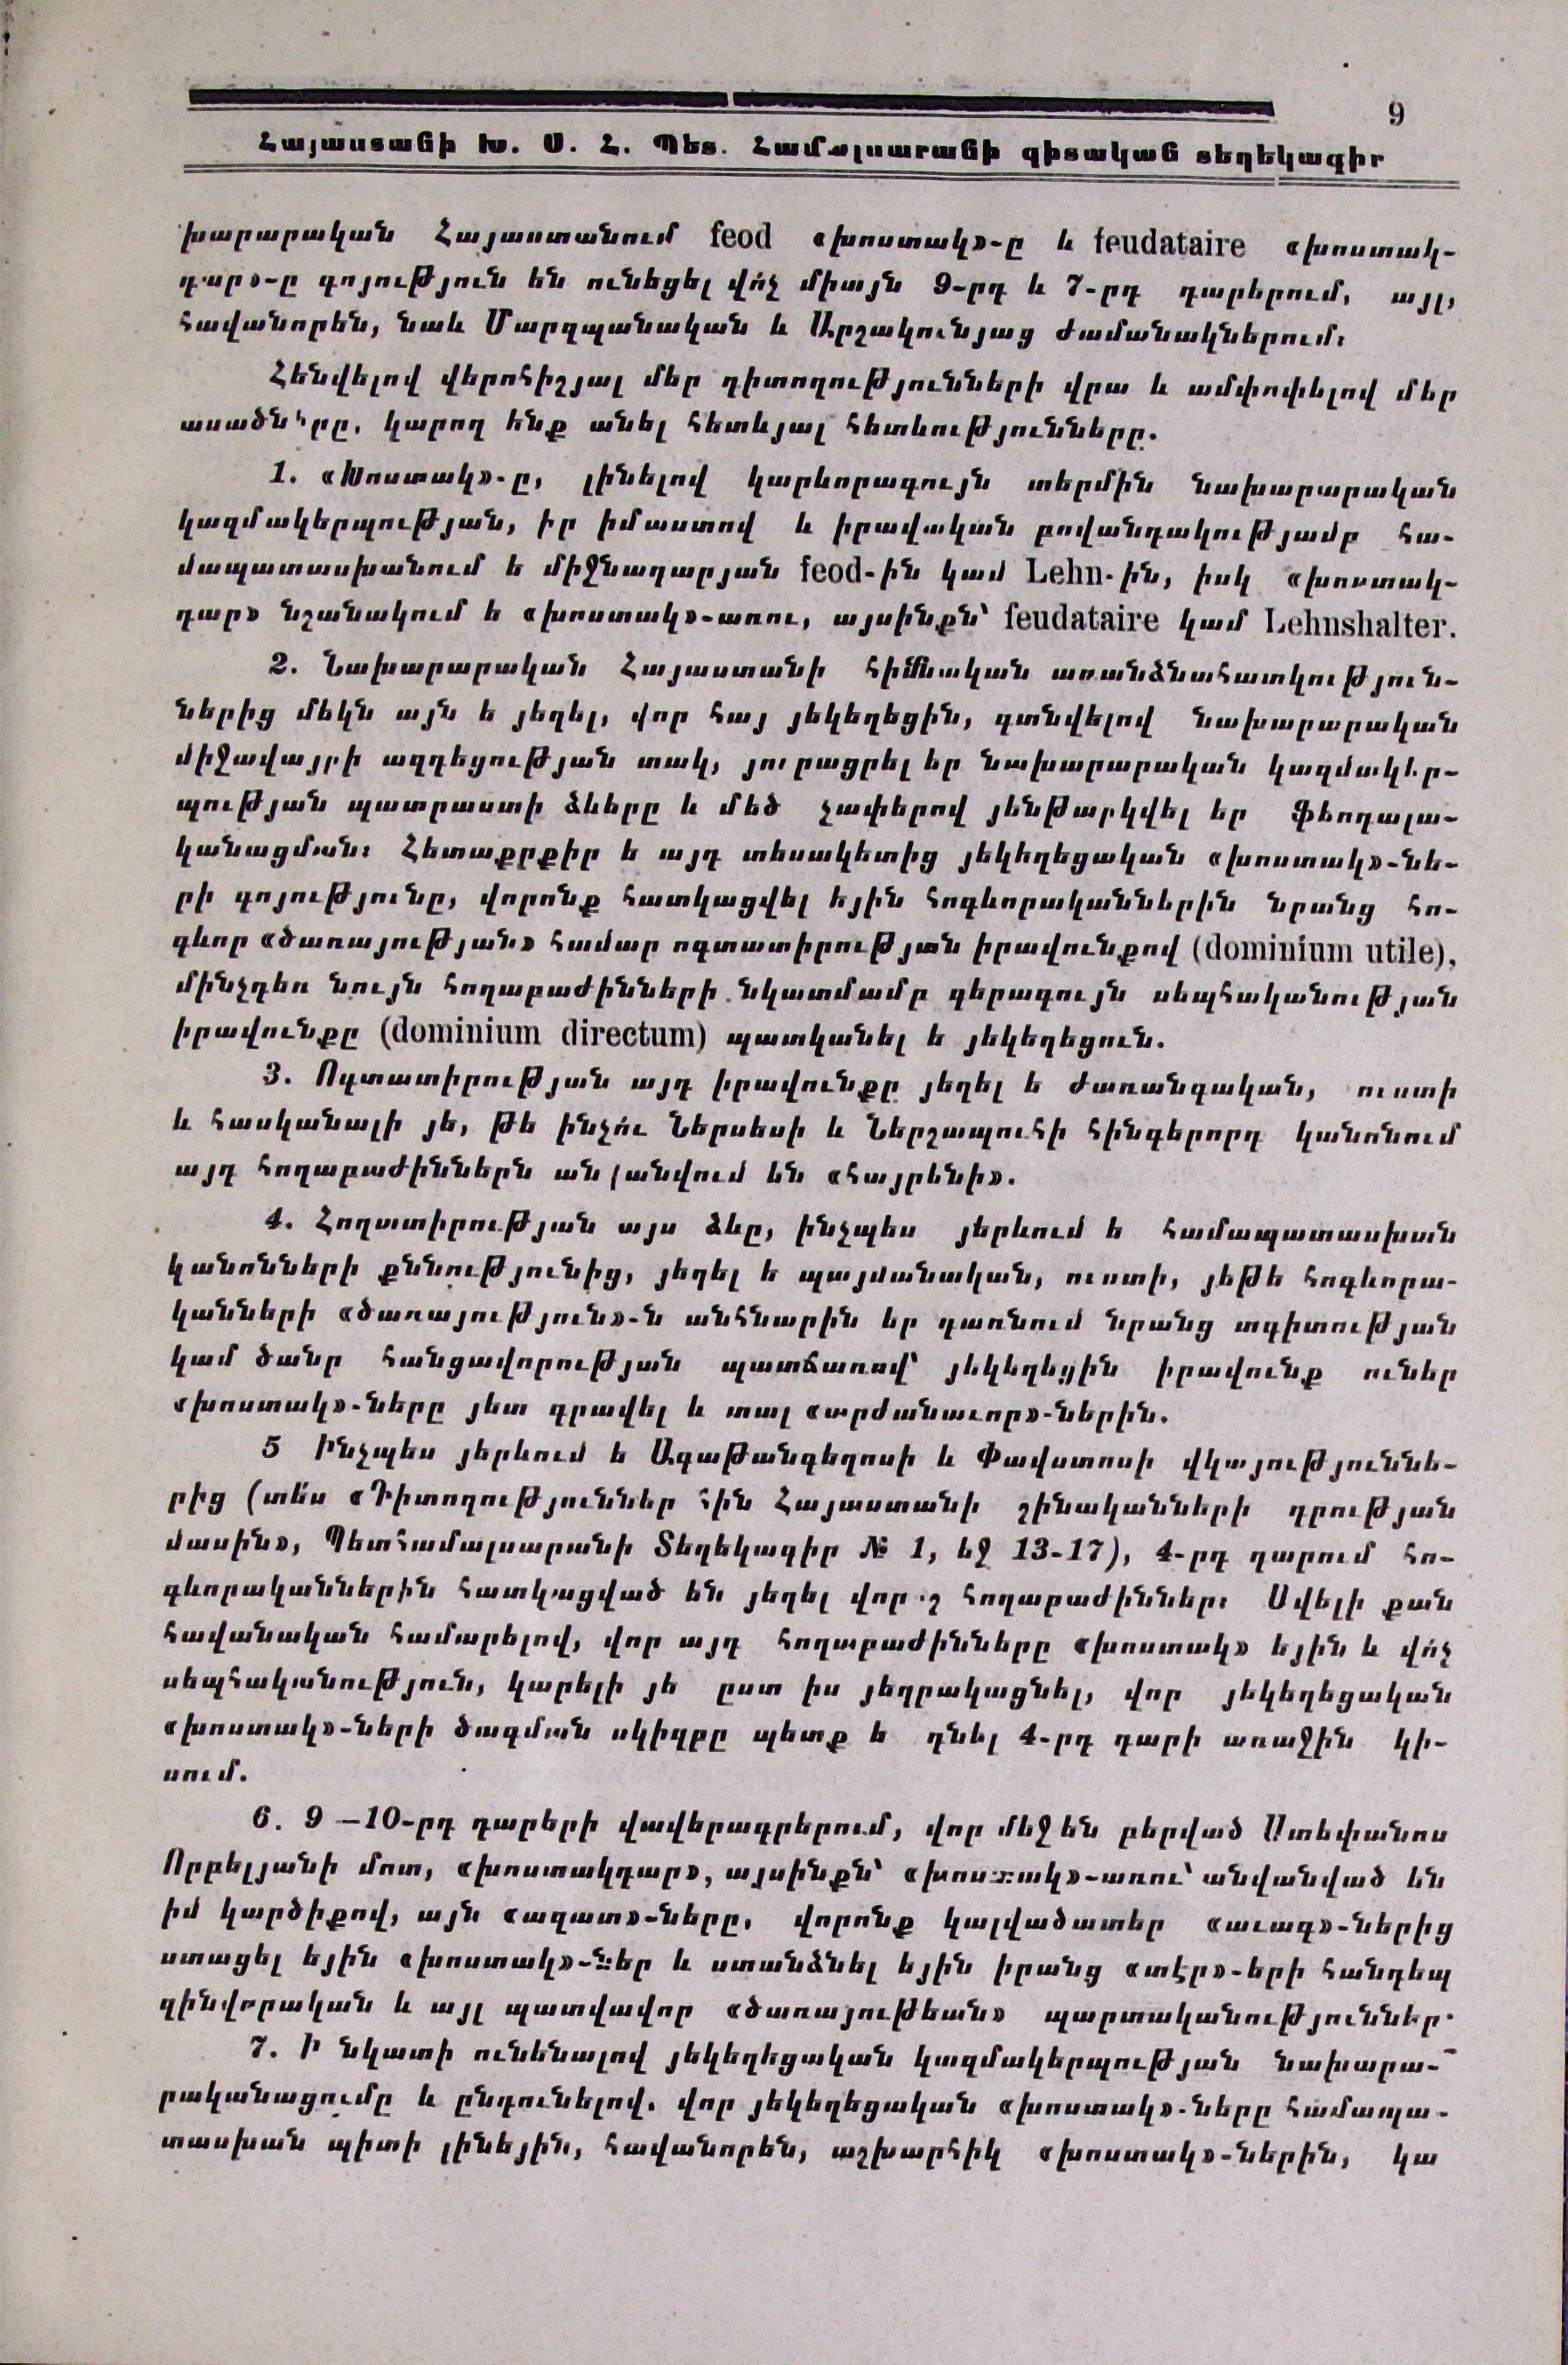 9
Հայաստանի Խ. Ս. Հ. Պետ. Համալսարանի գիտական տեղեկագիր
խարարական Հայաստանում feod «խոստակ»-ը և feudataire «խոստակ-
դար»-ը գոյություն են ունեցել վո՛չ միայն 9-րդ և 7-րդ դարերում, այլ,
հավանորեն, նաև Մարզպանական և Արշակունյաց ժամանակներում:
Հենվելով վերոհիշյալ մեր դիտողությունների վրա և ամփոփելով մեր
ասածները, կարող ենք անել հետևյալ հետևությունները.
1. «Խոստակ»-ը, լինելով կարևորագույն տերմին նախարարական
կազմակերպության, իր իմաստով և իրավական բովանդակությամբ հա-
մապատասխանում ե միջնադարյան feod-ին կամ Lehn-ին, իսկ «խոստակ-
դար» նշանակում ե «խոստակ»-առու, այսինքն՝ feudataire կամ Lehnshalter.
2. Նախարարական Հայաստանի հիմնական առանձնահատկություն-
ներից մեկն այն ե յեղել, վոր հայ յեկեղեցին, գտնվելով նախարարական
միջավայրի ազդեցության տակ, յուրացրել եր նախարարական կազմակեր-
պության պատրաստի ձևերը և մեծ չափերով յենթարկվել եր ֆեոդալա-
կանացման: Հետաքրքիր ե այդ տեսակետից յեկեղեցական «խոստակ»-նե-
րի գոյությունը, վորոնք հատկացվել եյին հոգևորականներին նրանց հո-
գևոր «ծառայության» համար ոգտատիրության իրավունքով (dominium utile),
մինչդեռ նույն հողաբաժինների նկատմամբ գերագույն սեպհականության
իրավունքը (dominium directum) պատկանել ե յեկեղեցուն.
3. Ոգտատիրության այդ իրավունքը յեղել ե ժառանգական, ուստի
և հասկանալի յե, թե ինչո՛ւ Ներսեսի և Ներշապուհի հինգերորդ կանոնում
այդ հողաբաժիններն անվանվում են «հայրենի».
4. Հողատիրության այս ձևը, ինչպես յերևում ե համապատասխան
կանոնների քննությունից, յեղել ե պայմանական, ուստի, յեթե հոգևորա-
կանների «ծառայություն»-ն անհնարին եր դառնում նրանց տգիտության
կամ ծանր հանցավորության պատճառով՝ յեկեղեցին իրավունք ուներ
«խոստակ»-ները յետ գրավել և տալ «արժանաւոր»-ներին.
5 Ինչպես յերևում ե Ագաթանգեղոսի և Փավստոսի վկայություննե-
րից (տե՛ս «Դիտողություններ հին Հայաստանի շինականների դրության
մասին», Պետհամալսարանի Տեղեկագիր № 1, եջ 13-17), 4-րդ դարում հո-
գևորականներին հատկացված են յեղել վորոշ հողաբաժիններ: Ավելի քան
հավանական համարելով, վոր այդ հողաբաժինները «խոստակ» եյին և վո՛չ
սեպհականություն, կարելի յե ըստ իս յեզրակացնել, վոր յեկեղեցական
«խոստակ»-ների ծագման սկիզբը պետք ե դնել 4-րդ դարի առաջին կի-
սում.
6. 9 —10-րդ դարերի վավերագրերում, վոր մեջ են բերված Ստեփանոս
Որբելյանի մոտ, «խոստակդար», այսինքն՝ «խոստակ»-առու՝ անվանված են
իմ կարծիքով, այն «ազատ»-ները, վորոնք կալվածատեր «աւագ»-ներից
ստացել եյին «խոստակ»-ներ և ստանձնել եյին իրանց «տէր»-երի հանդեպ
զինվորական և այլ պատվավոր «ծառայութեան» պարտականություններ.
7. Ի նկատի ունենալով յեկեղեցական կազմակերպության նախարա-
րականացումը և ընդունելով. վոր յեկեղեցական «խոստակ»-ները համապա-
տասխան պիտի լինեյին, հավանորեն, աշխարհիկ «խոստակ»-ներին, կա